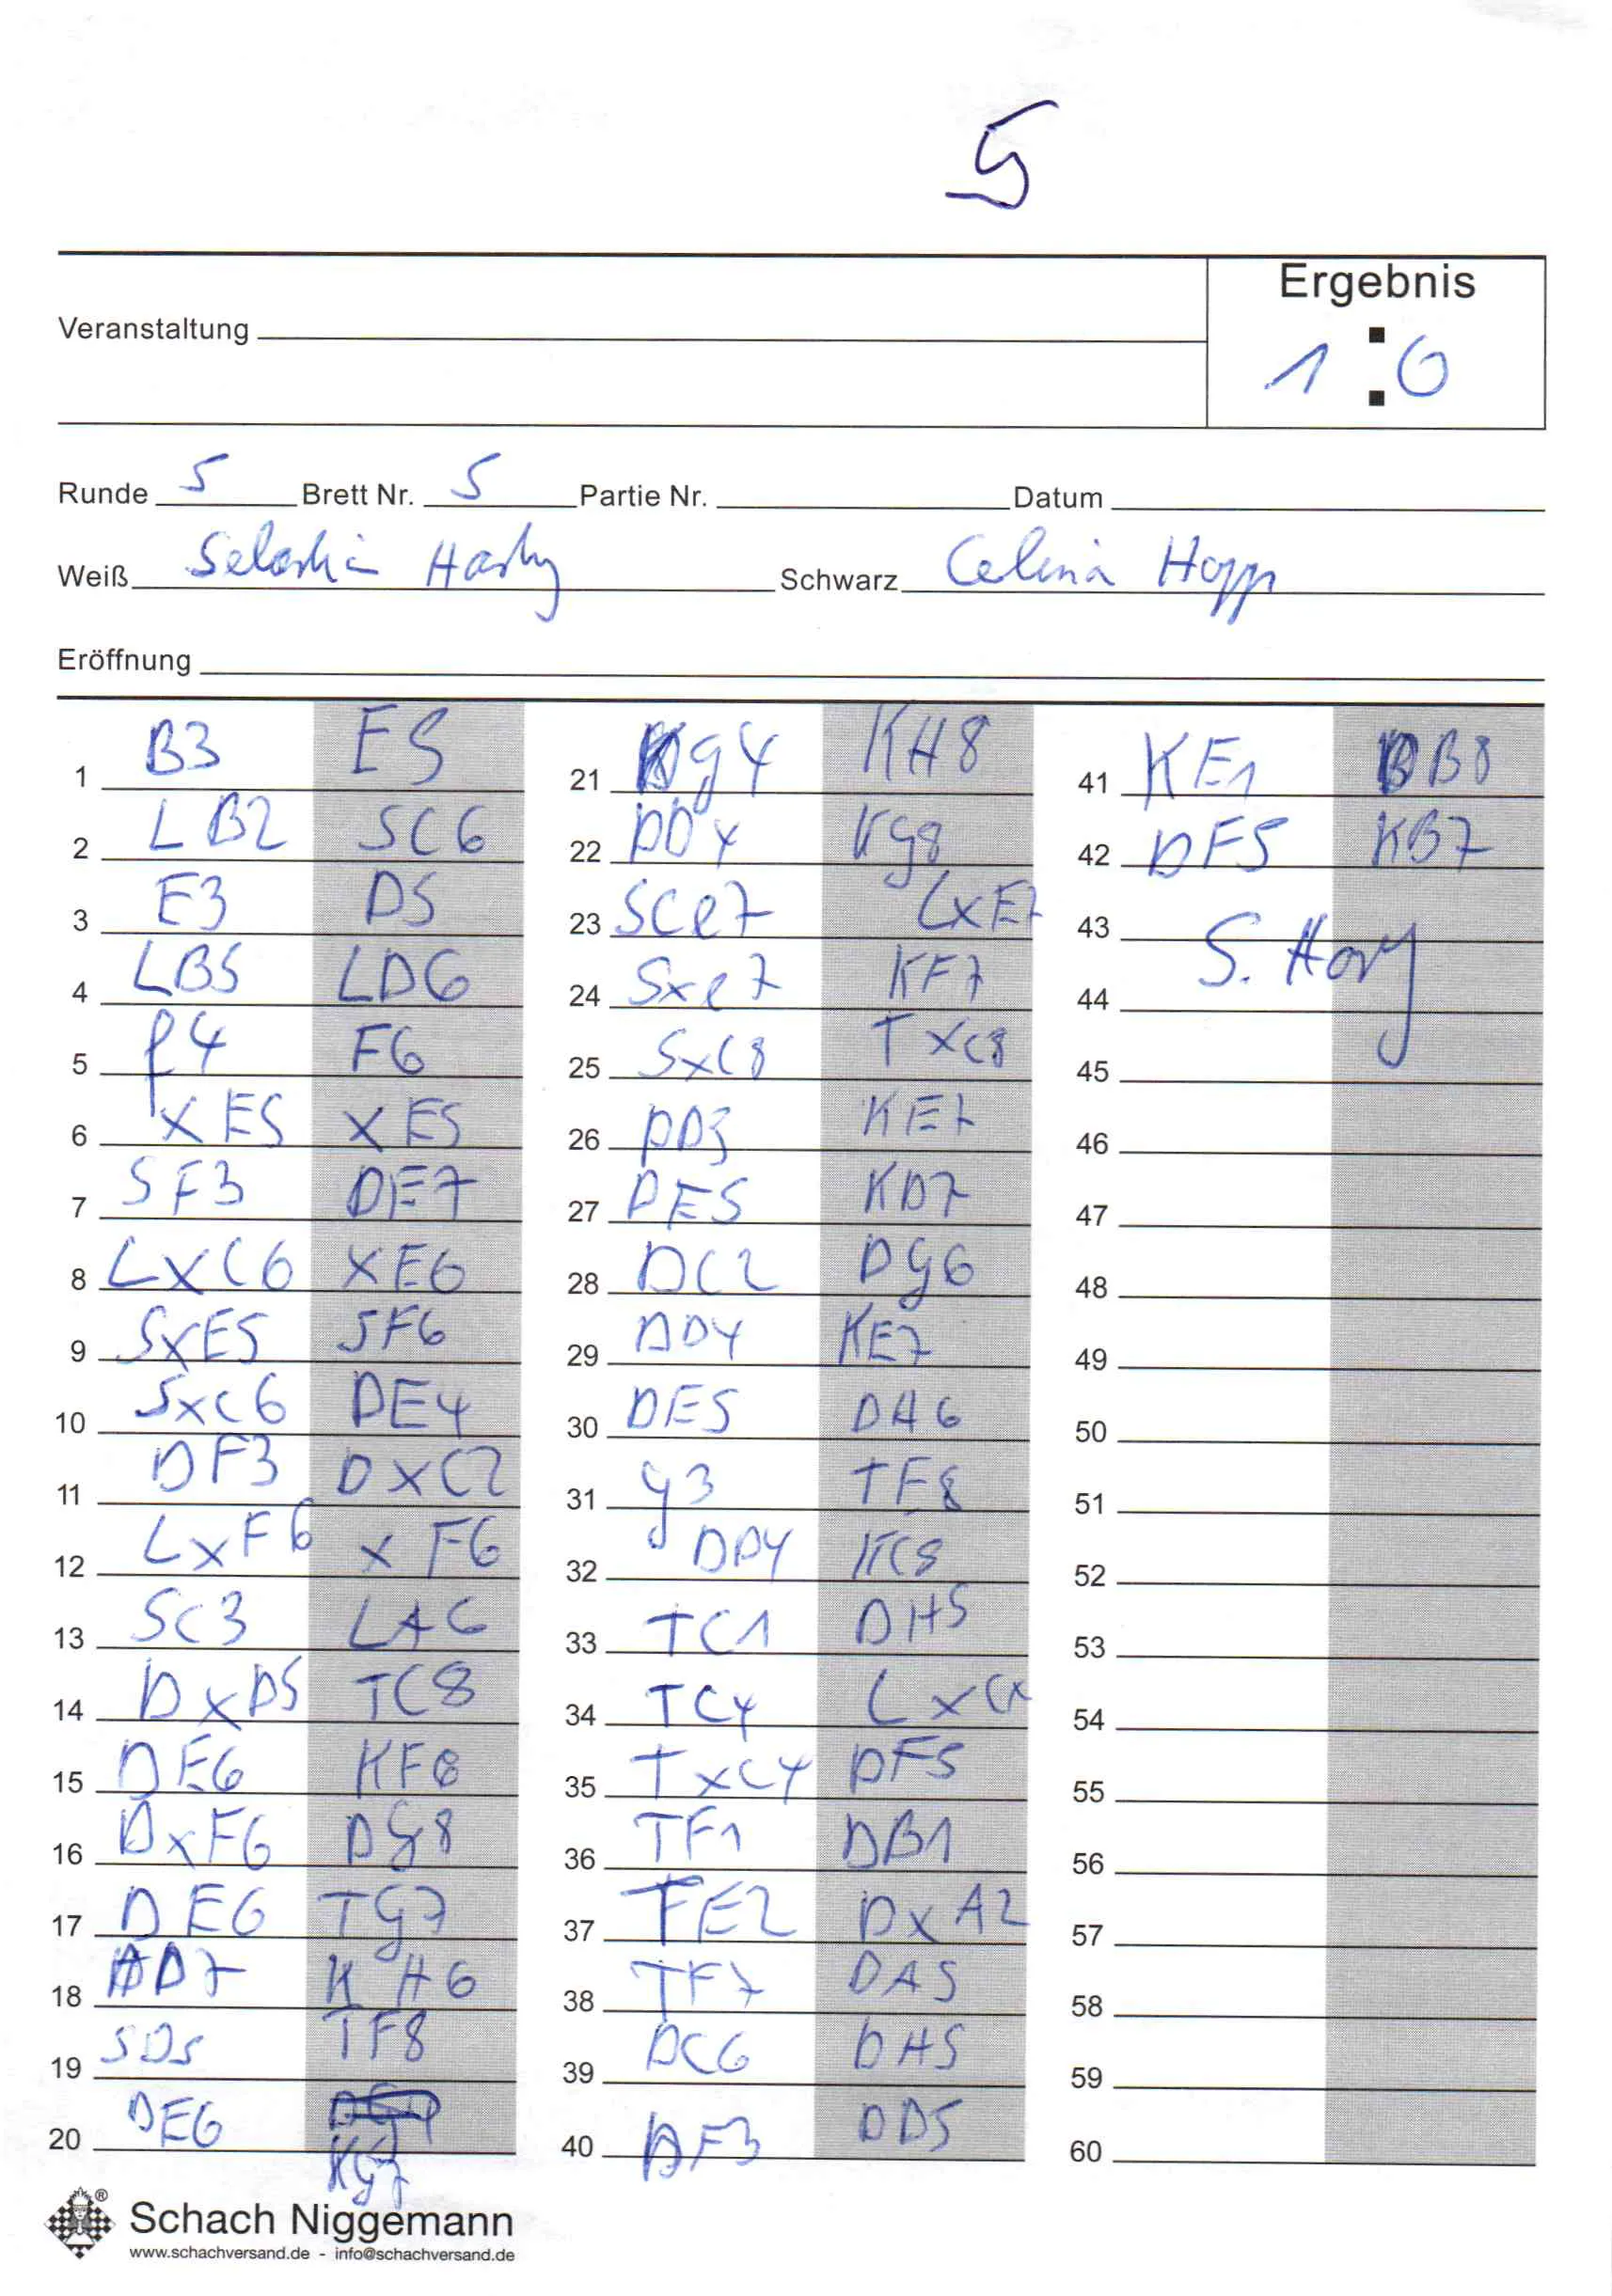 5
Ergebnis
Veranstaltung
1 : 0
Runde 5 Brett Nr. 5 Partie Nr. Datum
Weiß Schwarz Celina Hopp
Eröffnung
1 B3 E5
2 LB2 SC6
3 E3 D5
4 LB5 LD6
5 f4 F6
6 XE5 XE5
7 SF3 DE7
8 LXC6 XE6
9 SXE5 SF6
10 SXC6 DE4
11 DF3 DXC2
12 LXF6 XF6
13 SC3 LA6
14 DXD5 TC8
15 DE6 KF8
16 DXF6 Dg8
17 DE6 Tg7
18 DD7 KH6
19 SD5 TF8
20 DE6 Kg7
21 Dg4 KH8
22 DD4 Kg8
23 SCe7 LXE7
24 Sxe7 KF7
25 SxC8 TXC8
26 DD3 KE7
27 DE5 KD7
28 DC2 Dg6
29 DD4 KE7
30 DE5 DH6
31 g3 TF8
32 DD4 KC8
33 TC1 DH5
34 TC4 LxC4
35 TxC4 DF5
36 TF1 DB1
37 TE2 DXA2
38 TF7 DA5
39 DC6 DH5
40 DF3 DD5
41 KE1 BB8
42 DF5 KB7
43
44
45
46
47
48
49
50
51
52
53
54
55
56
57
58
59
60
Schach Niggemann
www.schachversand.de - info@schachversand.de